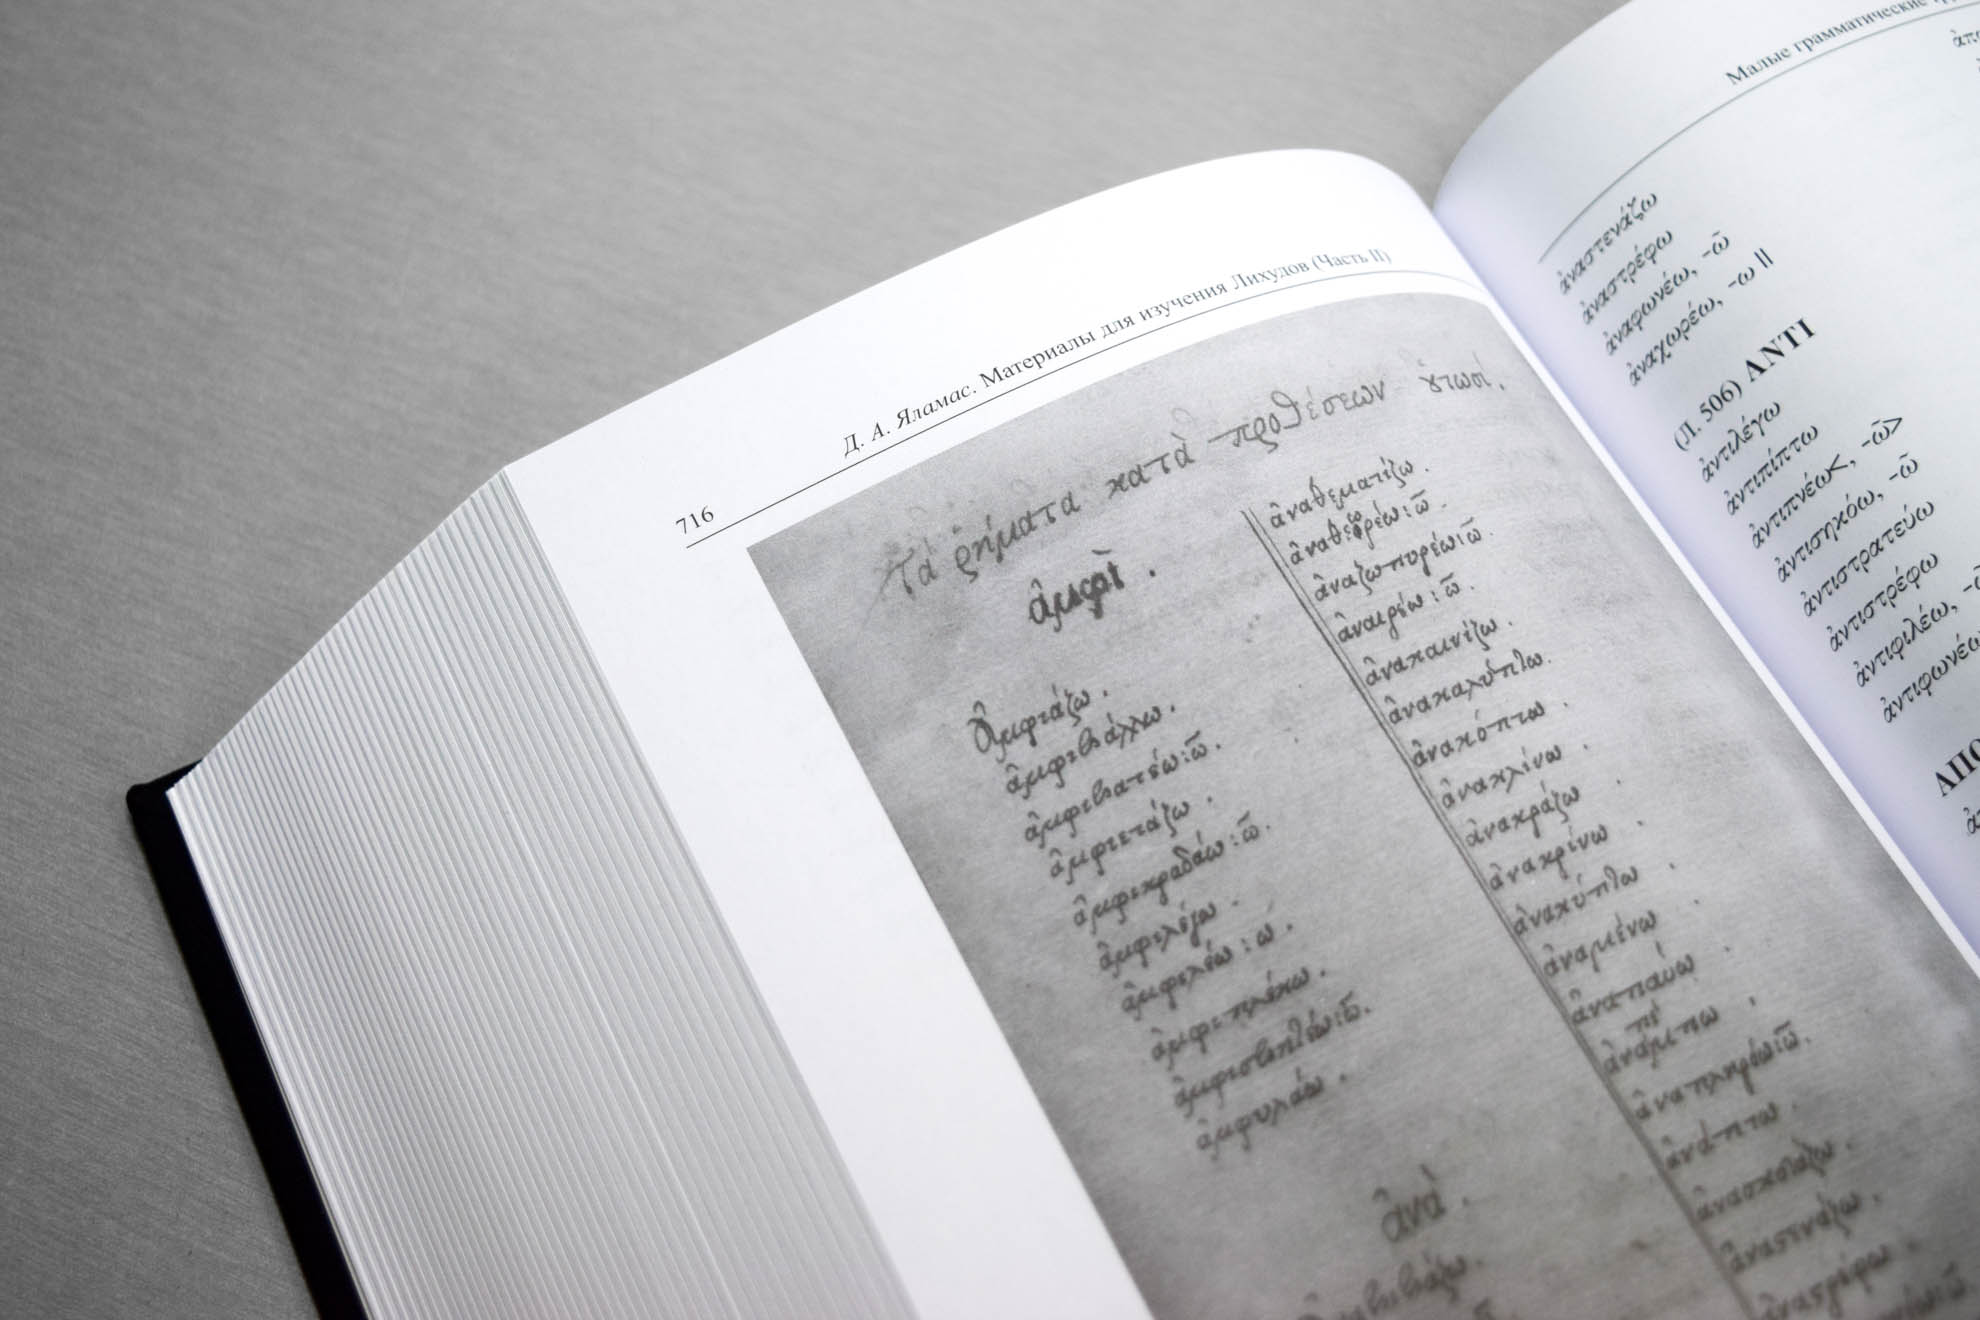 716
Д. А. Яламас. Материалы для изучения Лихудов (Часть II)
Τὰ ῥήματα κατὰ προθέσεων ȣ̔τωσί.
ἀμφὶ.
ἀμφιάζω.
ἀμφιβάλλω.
ἀμφιβατέω:ῶ.
ἀμφιετάζω.
ἀμφικραδάω:ῶ.
ἀμφιλέγω.
ἀμφιλέω:ῶ.
ἀμφιπλέκω.
ἀμφισβητέω:ῶ.
ἀμφυλάω.
ἀνὰ.
ἀναθεματίζω.
ἀναθεωρέω:ῶ.
ἀναζωπυρέω:ῶ.
ἀναιρέω:ῶ.
ἀνακαινίζω.
ἀνακαλύπτω.
ἀνακόπτω.
ἀνακλίνω.
ἀνακράζω.
ἀνακρίνω.
ἀνακύπτω.
ἀναμένω.
ἀναπαύω.
ἀναπέμπω.
ἀναπληρόω:ῶ.
ἀνάπτω.
ἀνασκολάζω.
ἀναστενάζω.
ἀναστρέφω.
Малые грамматические
ἀναστενάζω
ἀναστρέφω
ἀναφωνέω, -ῶ
ἀναχωρέω, -ω ||
(Л. 506) ΑΝΤΙ
ἀντιλέγω
ἀντιπίπτω
ἀντιπνέω<, -ῶ>
ἀντισηκόω, -ῶ
ἀντιστρατεύω
ἀντιστρέφω
ἀντιφιλέω,
ἀντιφωνέω
ΑΠΟ